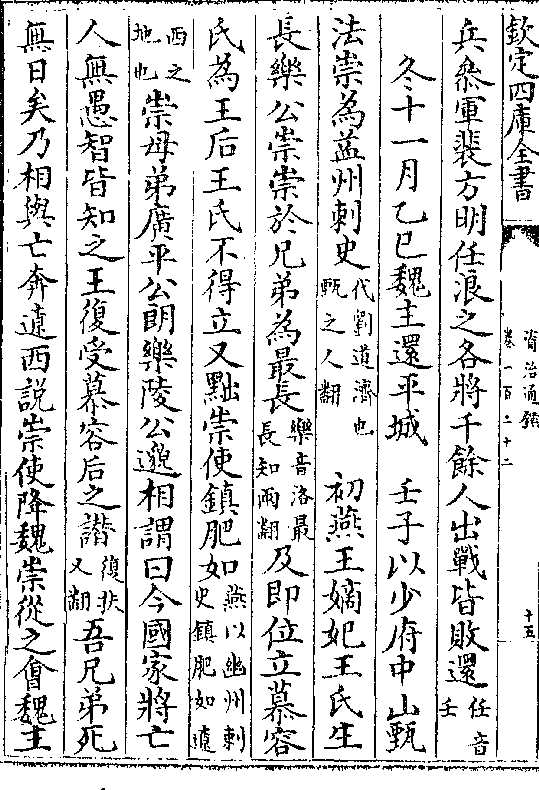 欽定四庫全書
資治通鑑
卷一百二十二
十五
兵叅軍裴方明任浪之各將千餘人出戰皆敗還任音壬
冬十一月乙巳魏主還平城　壬子以少府中山甄
法崇為益州刺史代劉道濟也甄之人翻　初燕王嫡妃王氏生
長樂公崇崇於兄弟為最長樂音洛最長知兩翻及即位立慕容
氏為王后王氏不得立又黜崇使鎮肥如燕以幽州刺史鎮肥如遼
西之地也崇母弟廣平公朗樂陵公邈相謂曰今國家將亡
人無愚智皆知之王復受慕容后之譖復扶又翻吾兄弟死
無日矣乃相與亡奔遼西說崇使降魏崇從之會魏主